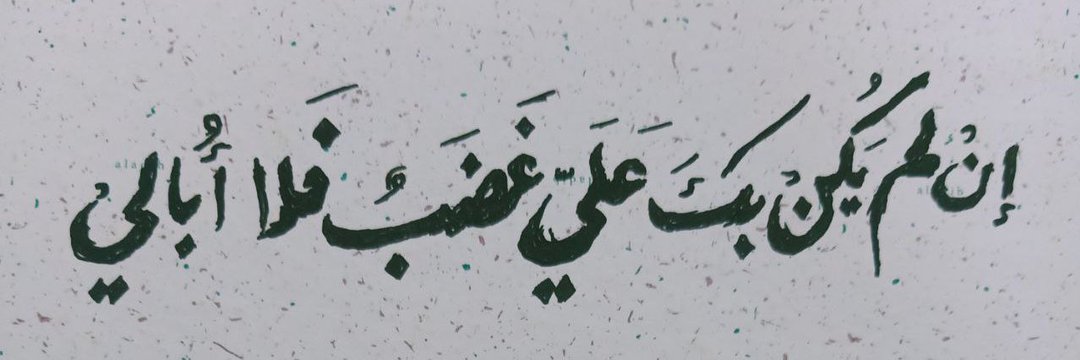 إِنْ لم يَكُنْ بِكَ عَلَيَّ غَضَبُ فَلَا أُبَالِيْ